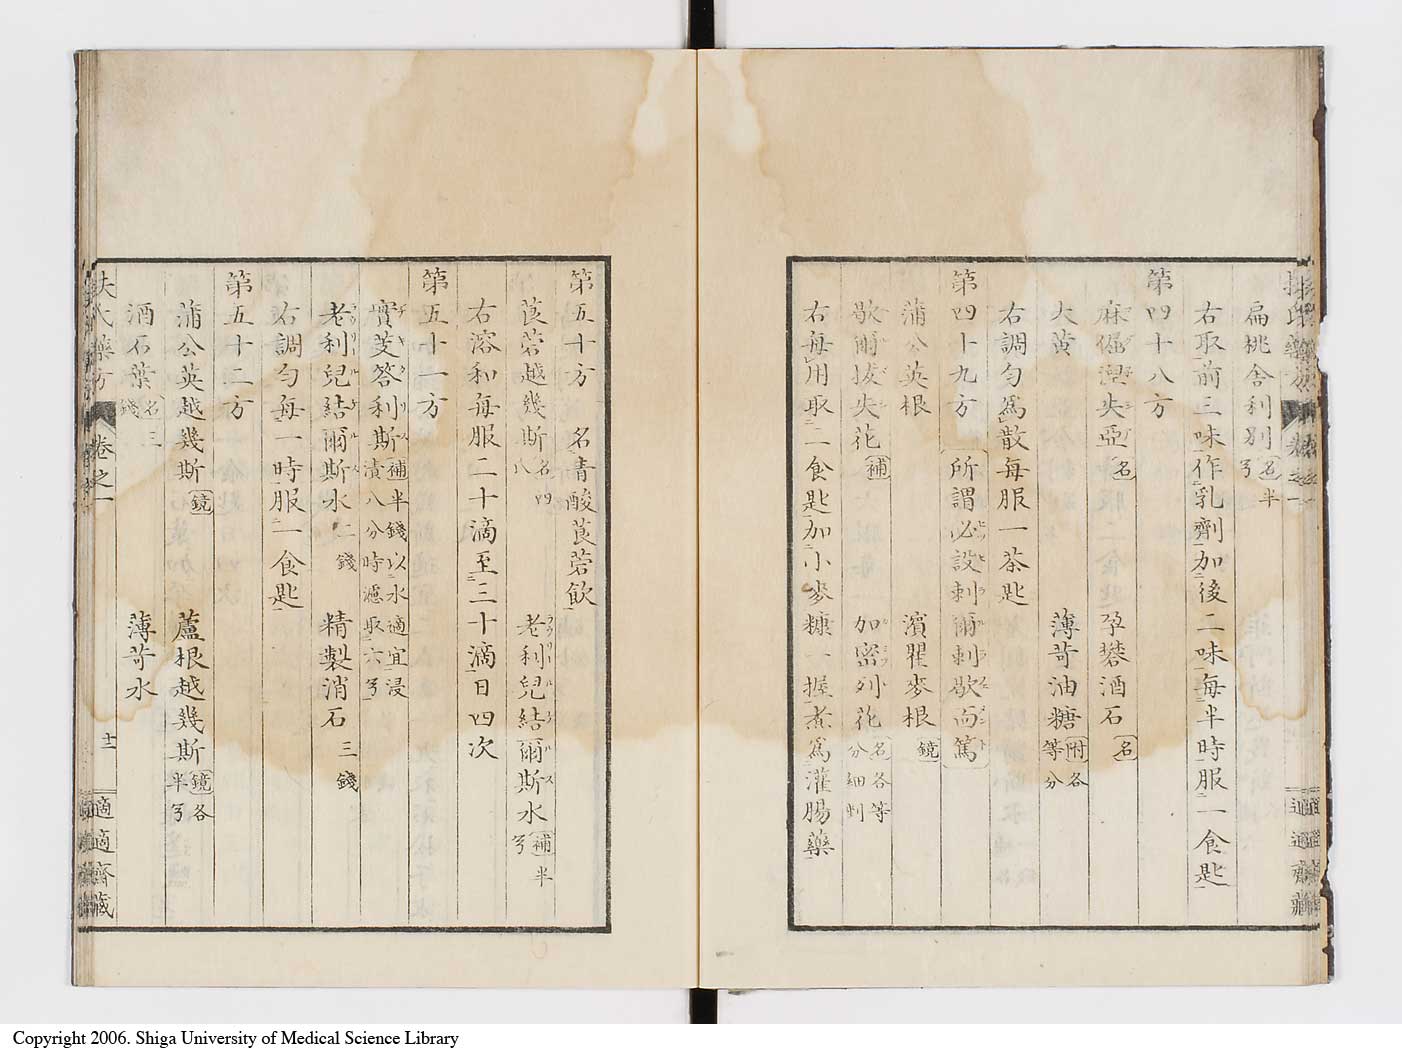 扁桃舎利別 名半ゟ
右取前三味作乳劑加後二味每半時服一食匙
第四十八方
麻倔涅矢亞 名 孕礬酒石 名
大黄 薄苛油糖 附各等分
右調勻爲散每服一茶匙
第四十九方 所謂必設剌爾剌歇而篤
蒲公英根 濱瞿麥根 鏡
歇爾拔失花 補 加密列花 名各等分細剉
右每用取二食匙加小麥糠一握煮爲灌腸藥
適適齋藏
第五十方 名青酸莨菪飲
莨菪越幾斯 名四八 老利兒結爾斯水 補半ゟ
右溶和每服二十滴至三十滴日四次
第五十一方
實芰答利斯 補半錢以水適宜浸漬八分時濾取六ゟ
老利兒結爾斯水 二錢 精製消石 三錢
右調勻每一時服一食匙
第五十二方
蒲公英越幾斯 鏡 蘆根越幾斯 鏡各半ゟ
酒石葉 名三錢 薄苛水
扶氏藥方 卷之一 十二 適適齋藏
Copyright 2006. Shiga University of Medical Science Library